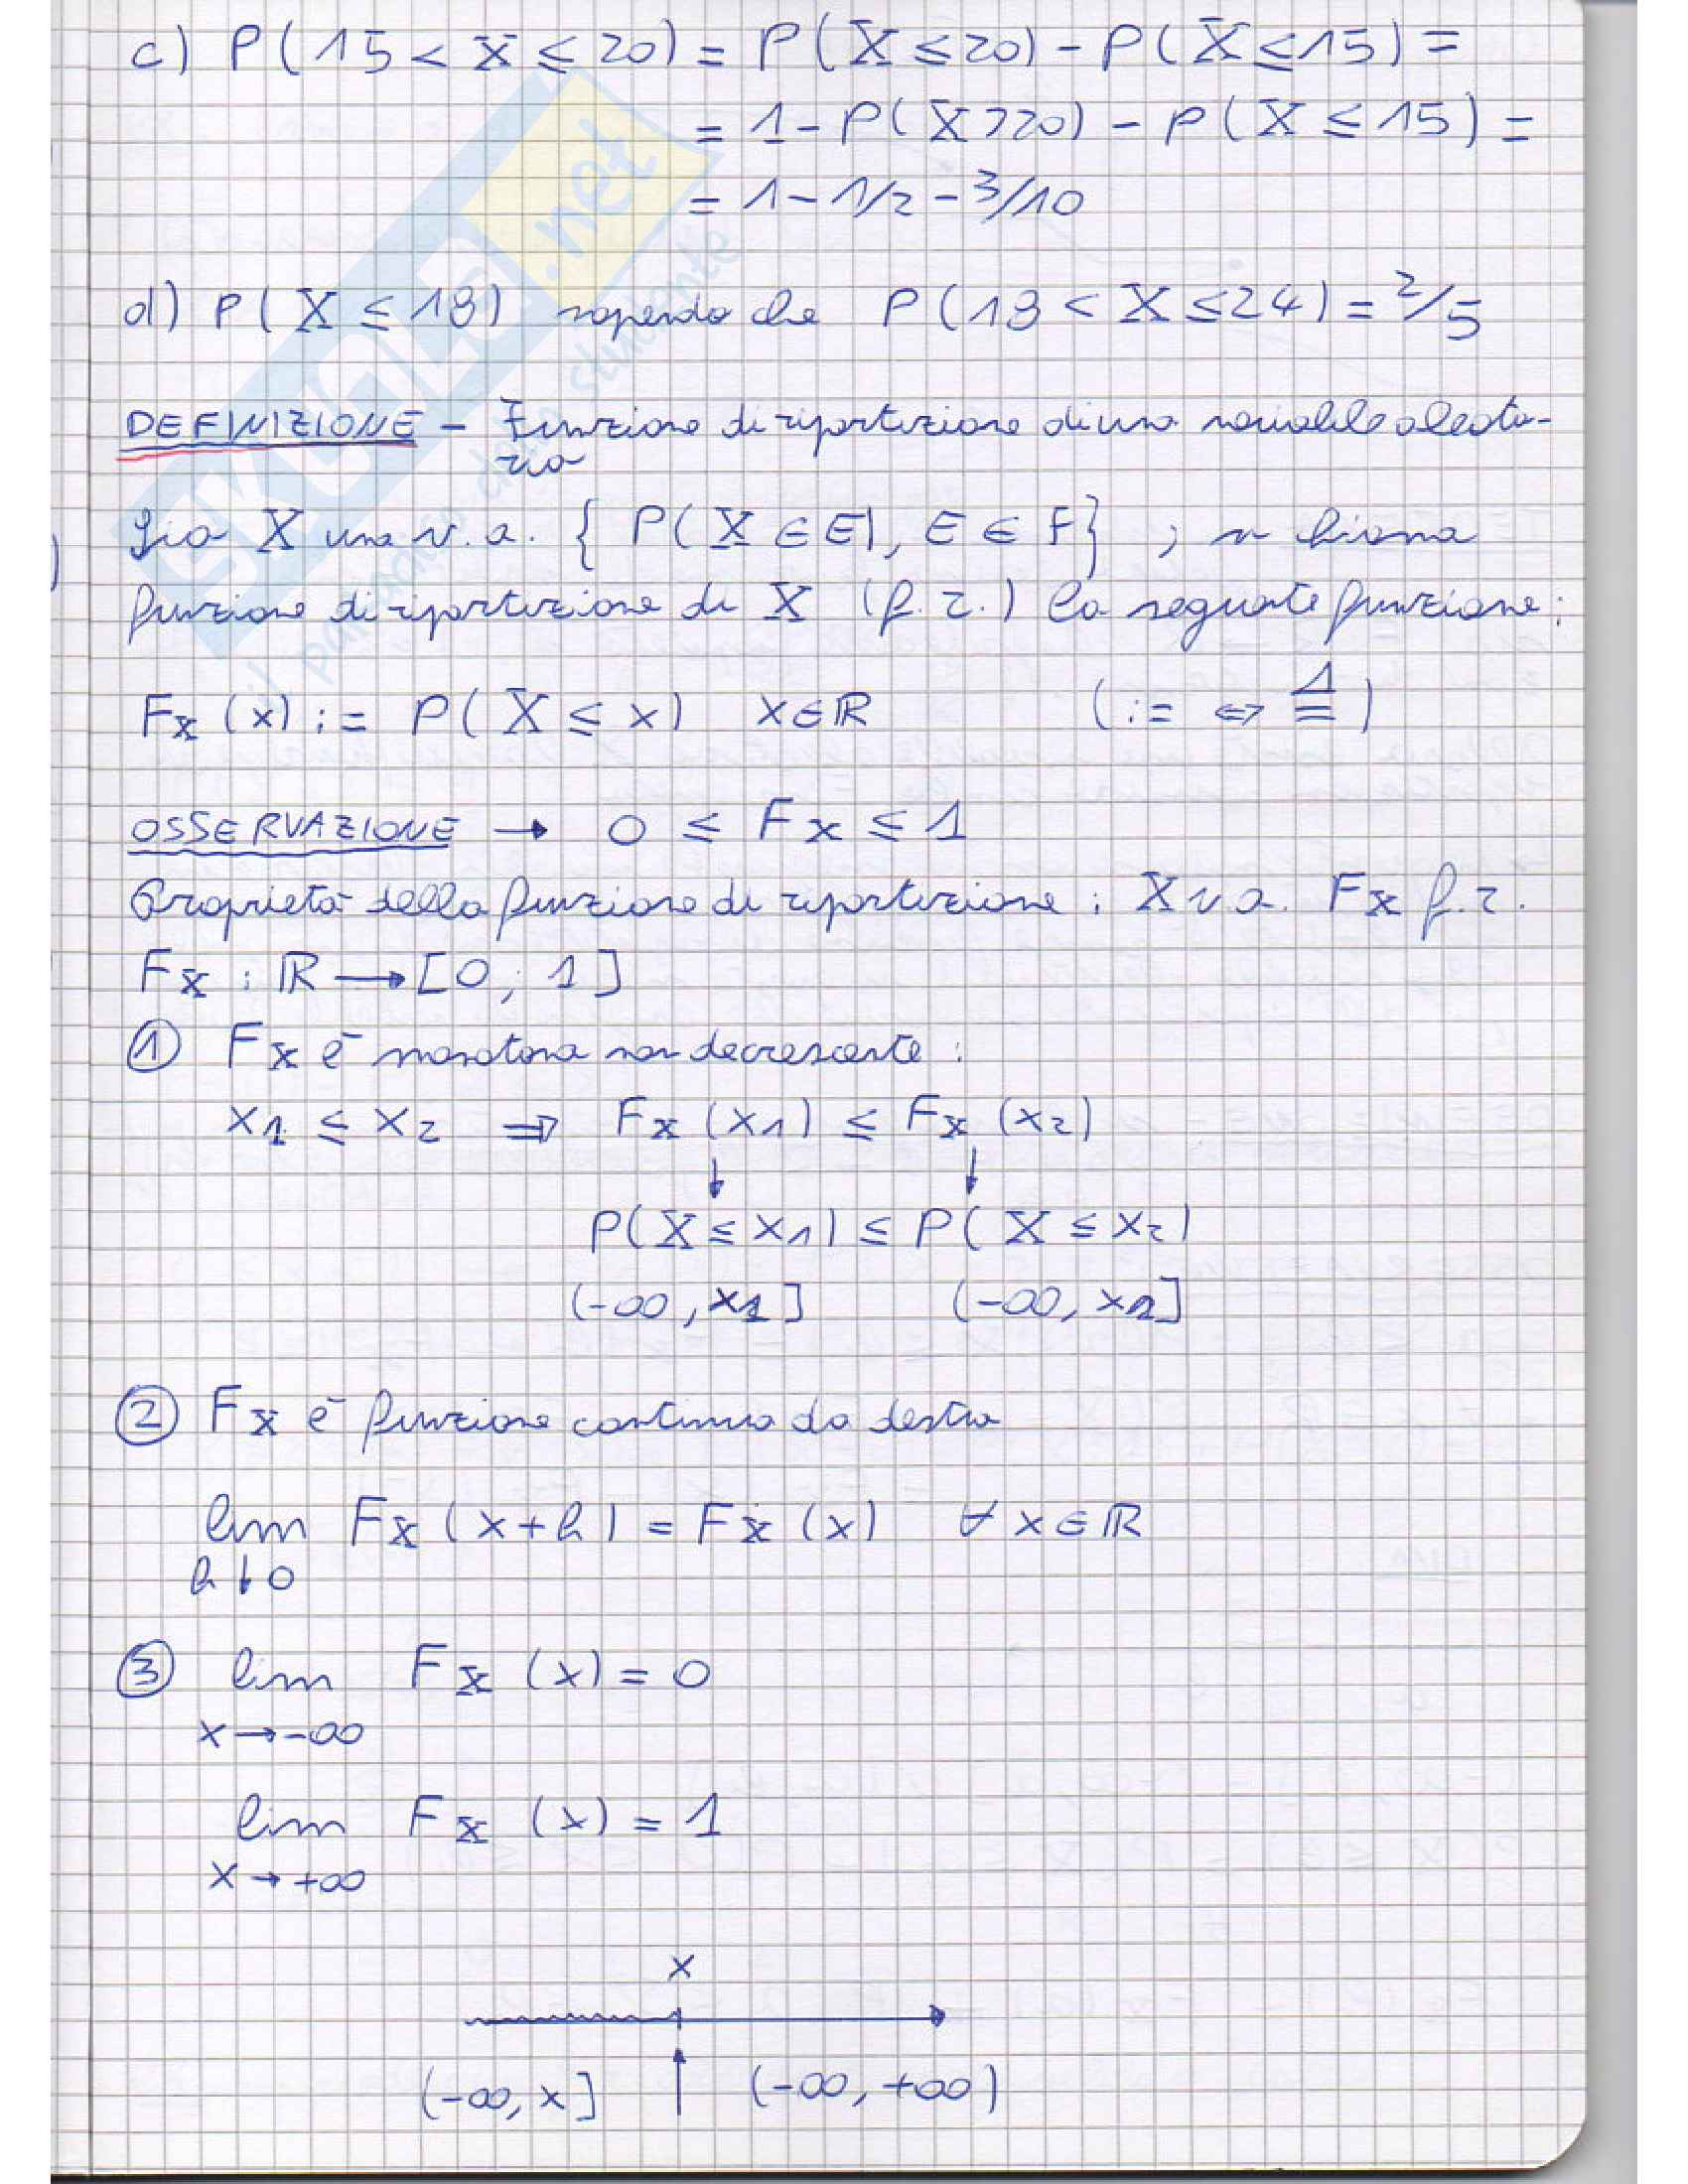 c) P(15 < X ≤ 20) = P(X ≤ 20) - P(X ≤ 15) =
= 1 - P(X > 20) - P(X ≤ 15) =
= 1 - 1/2 - 3/10
d) P(X ≤ 18) sapendo che P(18 < X ≤ 24) = 2/5
DEFINIZIONE - Funzione di ripartizione di una variabile aleato-
ria
Sia X una v.a. { P(X ∈ E), E ∈ F } ; si chiama
funzione di ripartizione di X (f.r.) la seguente funzione:
Fx (x) := P(X ≤ x) x ∈ ℝ (:= ⇔ ≜)
OSSERVAZIONE → 0 ≤ Fx ≤ 1
Proprietà della funzione di ripartizione: X v.a. Fx f.r.
Fx : ℝ → [0; 1]
① Fx è monotona non decrescente:
x1 ≤ x2 ⇒ Fx (x1) ≤ Fx (x2)
↓ ↓
P(X ≤ x1) ≤ P(X ≤ x2)
(-∞, x1] (-∞, x2]
② Fx è funzione continua da destra
lim Fx (x+h) = Fx (x) ∀ x ∈ ℝ
h↓0
③ lim Fx (x) = 0
x → -∞
lim Fx (x) = 1
x → +∞
x
(-∞, x] (-∞, +∞)
SKUOLA.net
il paradiso dello studente